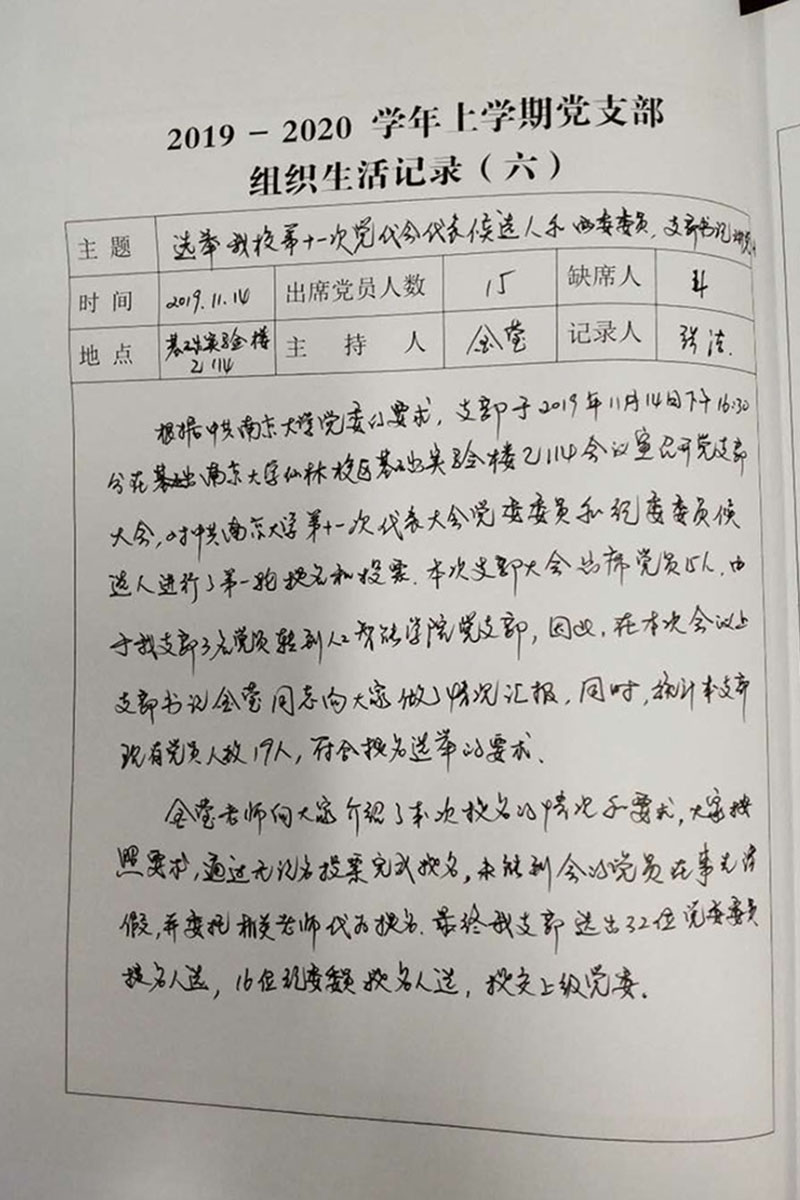 2019－2020 学年上学期党支部
组织生活记录（六）
主题 选举我校第十一次党代会代表候选人和两委委员，支部书记
时间 2019.11.14 出席党员人数 15 缺席人 4
地点 基础实验楼乙114 主持人 金莹 记录人 张洁
根据中共南京大学党委的要求，支部于2019年11月14日下午16:30
分在南京大学仙林校区基础实验楼乙114会议室召开党支部
大会，对中共南京大学第十一次代表大会党委委员和纪委委员候
选人进行了第一轮提名和投票．本次支部大会出席党员15人．由
于我支部3名党员转到人工智能学院党支部，因此，在本次会议上
支部书记金莹同志向大家做了情况汇报，同时，统计本支部
现有党员人数19人，符合提名选举的要求．
金莹老师向大家介绍了本次提名的情况和要求，大家按
照要求，通过无记名投票完成提名，未能到会的党员在事先请
假，并委托相关老师代为提名．最终我支部选出32位党委委员
提名人选，16位纪委委员提名人选，提交上级党委．